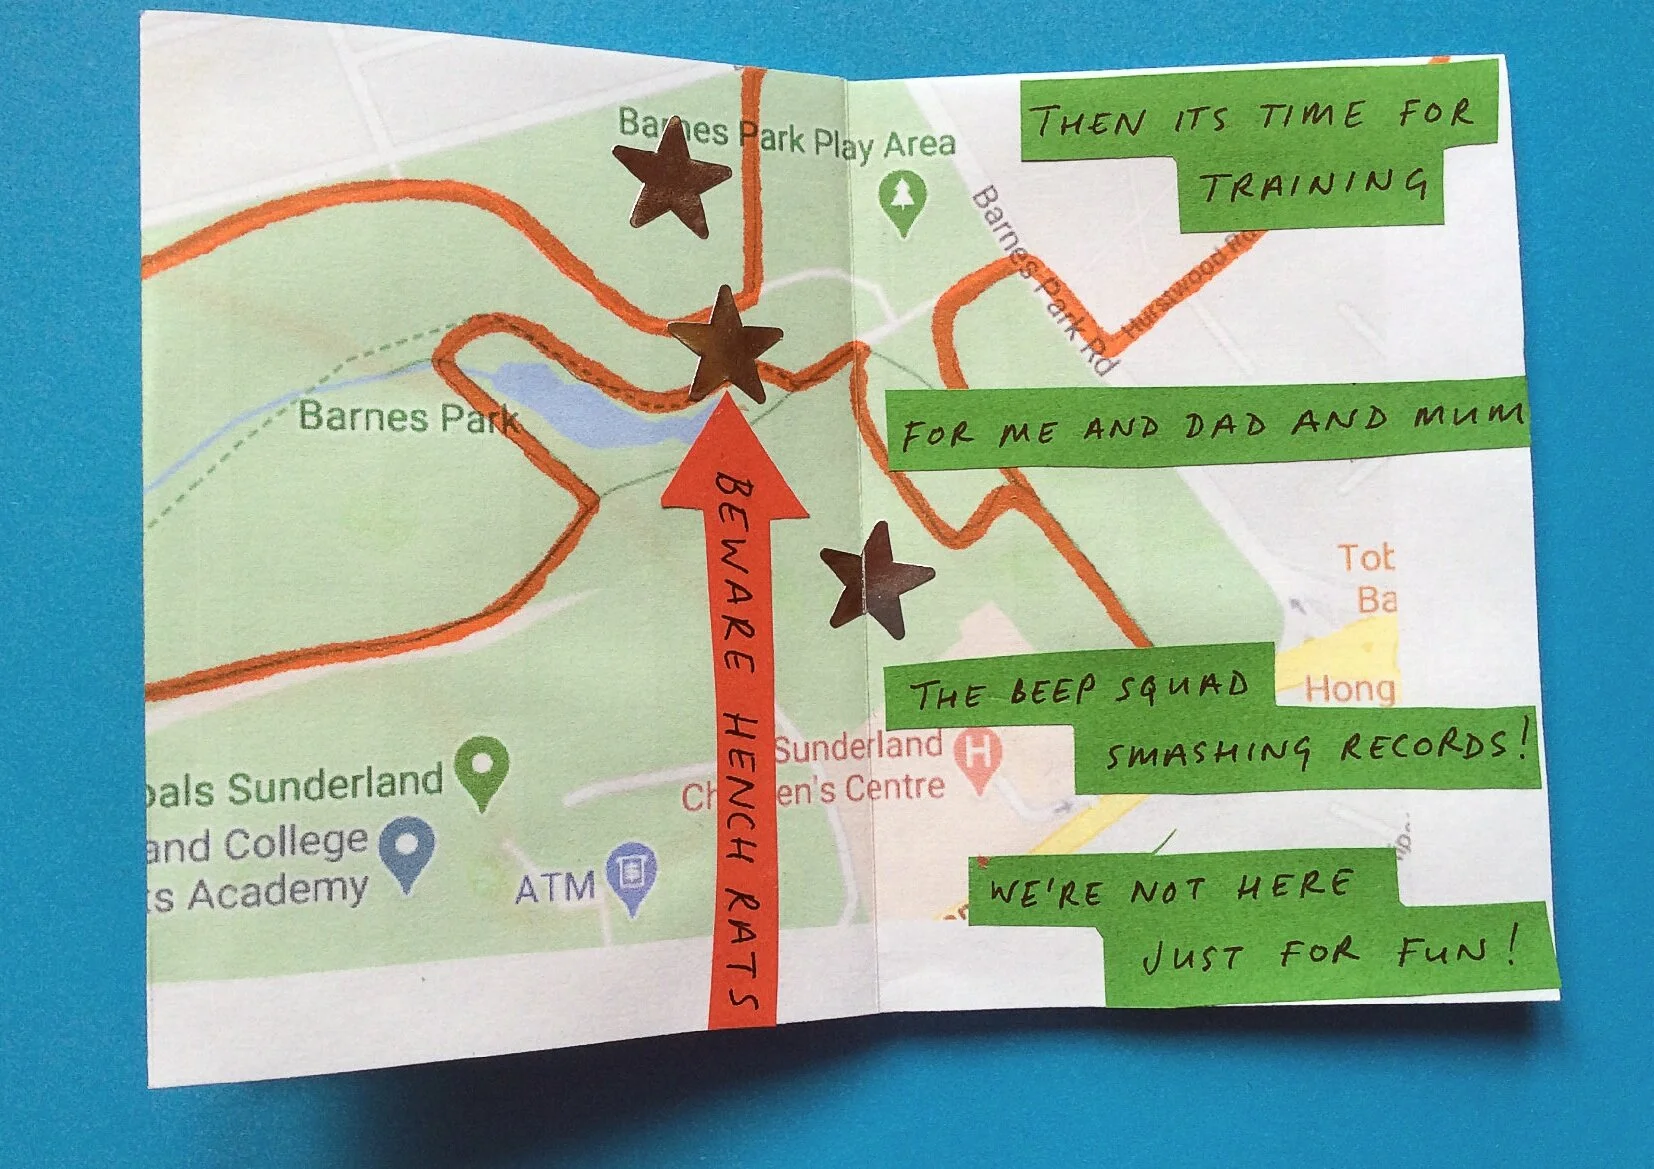 Barnes Park Play Area
Barnes Park
BEWARE HENCH RATS
oals Sunderland
and College
ts Academy
ATM
Sunderland
Ch en's Centre
H
THEN ITS TIME FOR
TRAINING
Barnes Park Rd
Hurstwood Rd
FOR ME AND DAD AND MUM
Tot
Ba
Hong
THE BEEP SQUAD
SMASHING RECORDS!
WE'RE NOT HERE
JUST FOR FUN!